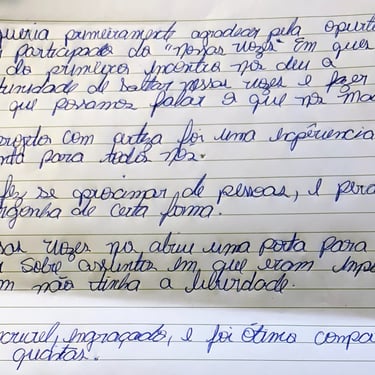 queria primeiramente agradecer pela oportu
participado do "nossas vozes" em que
do primeiro encontro nos deu a
tunidade de soltar nossas vozes e fazer
que possamos falar o que nos ma
projeto com certeza foi uma experiencia
para todos nós.
fez se aproximar de pessoas, e per
rgonha de certa forma.
sas vozes no abriu uma porta para
sobre assuntos em que eram imp
m não tinha a liberdade.
crivel, engraçado, e foi ótimo compa
quditas.